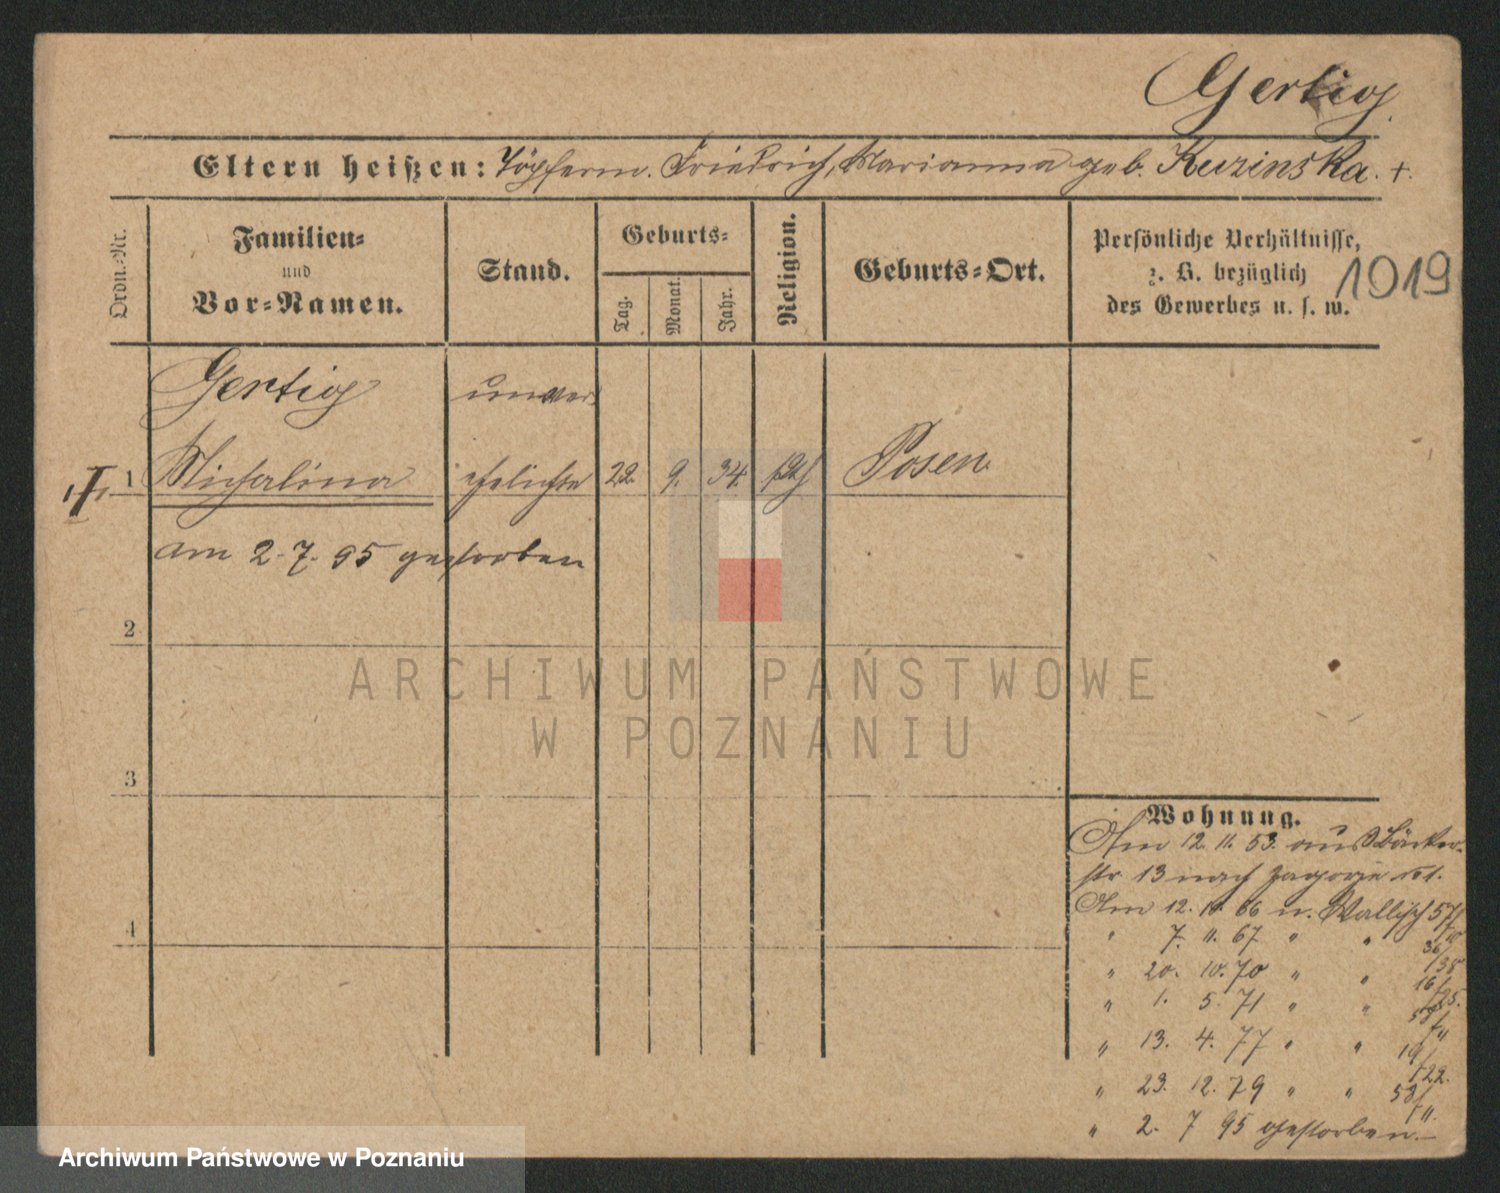 Gertig
Eltern heißen: Töpferm. Friedrich, Marianna geb. Kuzinska. +.
Ordn.-Nr.
Familien-
und
Vor-Namen.
Stand.
Geburts-
Tag.
Monat.
Jahr.
Religion.
Geburts-Ort.
Persönliche Verhältnisse,
z. B. bezüglich
des Gewerbes u. s. w.
1019
Gertig unver-
1 Michalina ehelichte 22. 9. 34. kth Posen
am 2. 7. 95 gestorben
2
3
4
Wohnung.
Am 12. 11. 53. aus Bäcker-
str 13 nach Zagorze No 1.
Am 12. 10. 66 n. Wallisch 57/
" 7. 11. 67 " "
" 20. 10. 70 " "
" 1. 5. 71 " "
" 13. 4. 77 " "
" 23. 12. 79 " "
" 2. 7 95 gestorben.
ARCHIWUM PAŃSTWOWE
W POZNANIU
Archiwum Państwowe w Poznaniu